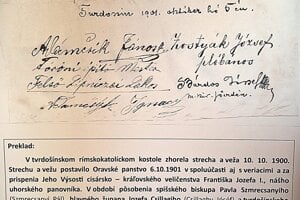 Turdosin 1901 október hó 5 én.
Adamcsik János Kostyák József
Toróni építő Mester plébános
Felső Lipniczai Lakos Bárdos József
Adamcsik Ignácz
Preklad:
V tvrdošínskom rímskokatolickom kostole zhorela strecha a veža 10. 10. 1900.
Strechu a vežu postavilo Oravské panstvo 6.10.1901 v spoluúčasti aj s veriacimi a za
prispenia Jeho Výsosti cisársko – kráľovského veličenstva Františka Jozefa I., nášho
uhorského panovníka. V období pôsobenia spišského biskupa Pavla Szmrecsanyiho
(Szmrecsányi Pál), hlavného župana Jozefa Csillaghyho